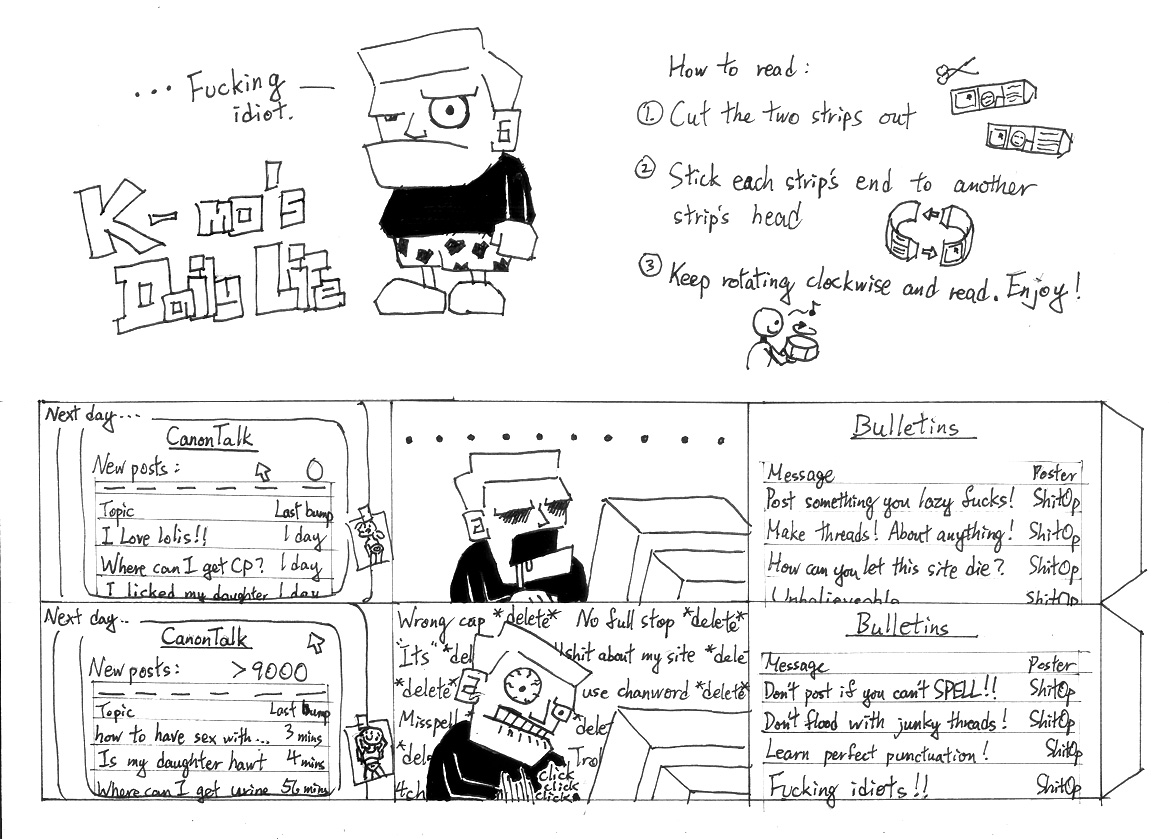 ... Fucking
idiot.
K-mo's
Daily Life
How to read:
1. Cut the two strips out
2 Stick each strip's end to another
strip's head
3 Keep rotating clockwise and read. Enjoy!
Next day...
CanonTalk
New posts: 0
Topic Last bump
I Love lolis!! 1 day
Where can I get CP? 1 day
I licked my daughter 1 day
Bulletins
Message Poster
Post something you lazy fucks! ShitOp
Make threads! About anything! ShitOp
How can you let this site die? ShitOp
Unbelieveable ShitOp
Next day..
CanonTalk
New posts: >9000
Topic Last bump
how to have sex with... 3 mins
Is my daughter hawt 4 mins
Where can I get urine 56 mins
Wrong cap *delete* No full stop *delete*
"Its" *del shit about my site *dele
*delete* use chanword *delete*
Misspell *delet
*dele Tro
4ch
click
click
click
Bulletins
Message Poster
Don't post if you can't SPELL!! ShitOp
Don't flood with junky threads! ShitOp
Learn perfect punctuation! ShitOp
Fucking idiots!! ShitOp